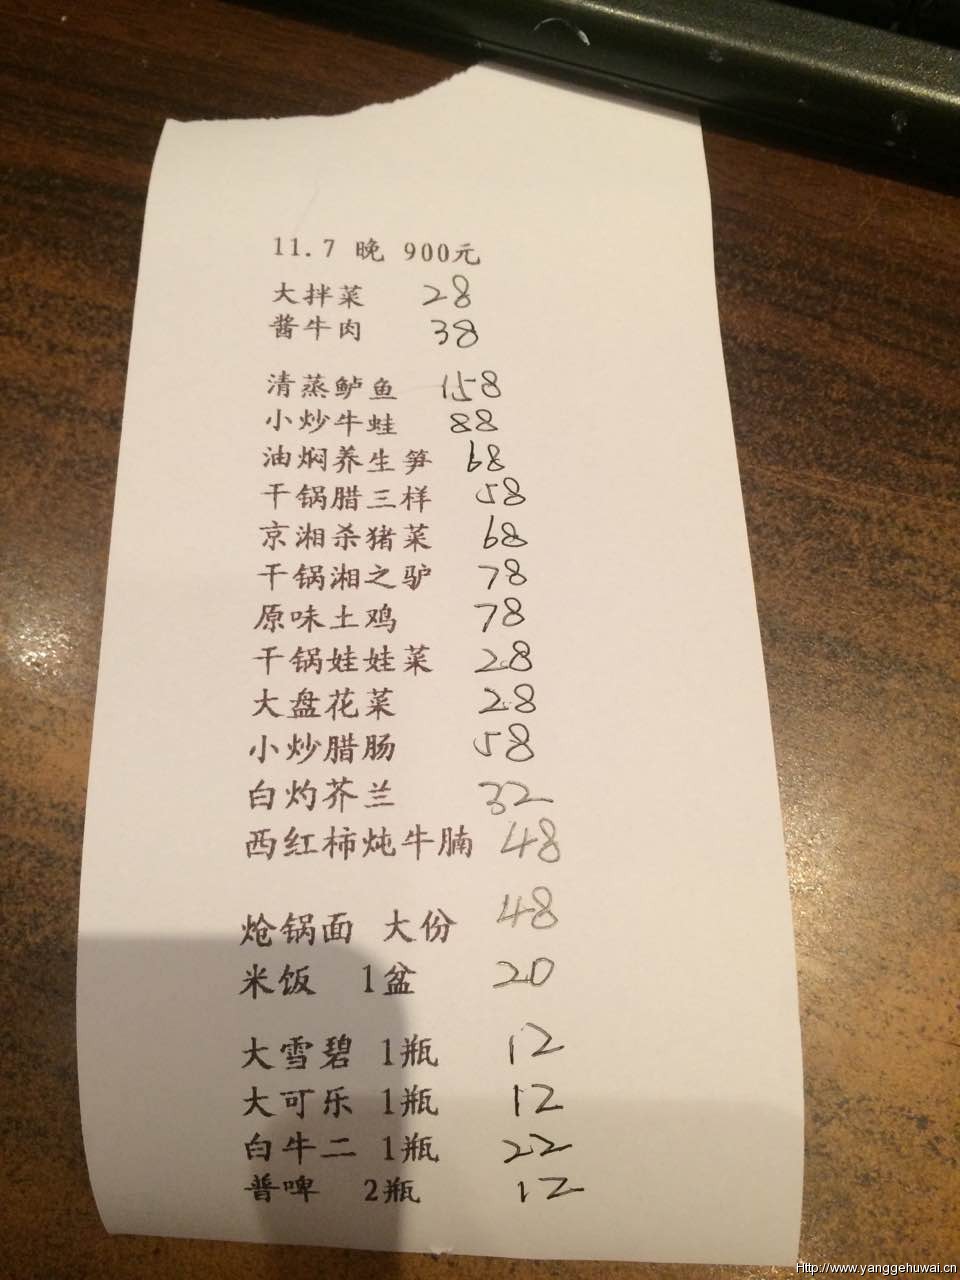 11.7 晚 900元
大拌菜 28
酱牛肉 38
清蒸鲈鱼 158
小炒牛蛙 88
油焖养生笋 68
干锅腊三样 58
京湘杀猪菜 68
干锅湘之驴 78
原味土鸡 78
干锅娃娃菜 28
大盘花菜 28
小炒腊肠 58
白灼芥兰 32
西红柿炖牛腩 48
炝锅面 大份 48
米饭 1盆 20
大雪碧 1瓶 12
大可乐 1瓶 12
白牛二 1瓶 22
普啤 2瓶 12
Http://www.yanggehuwai.cn